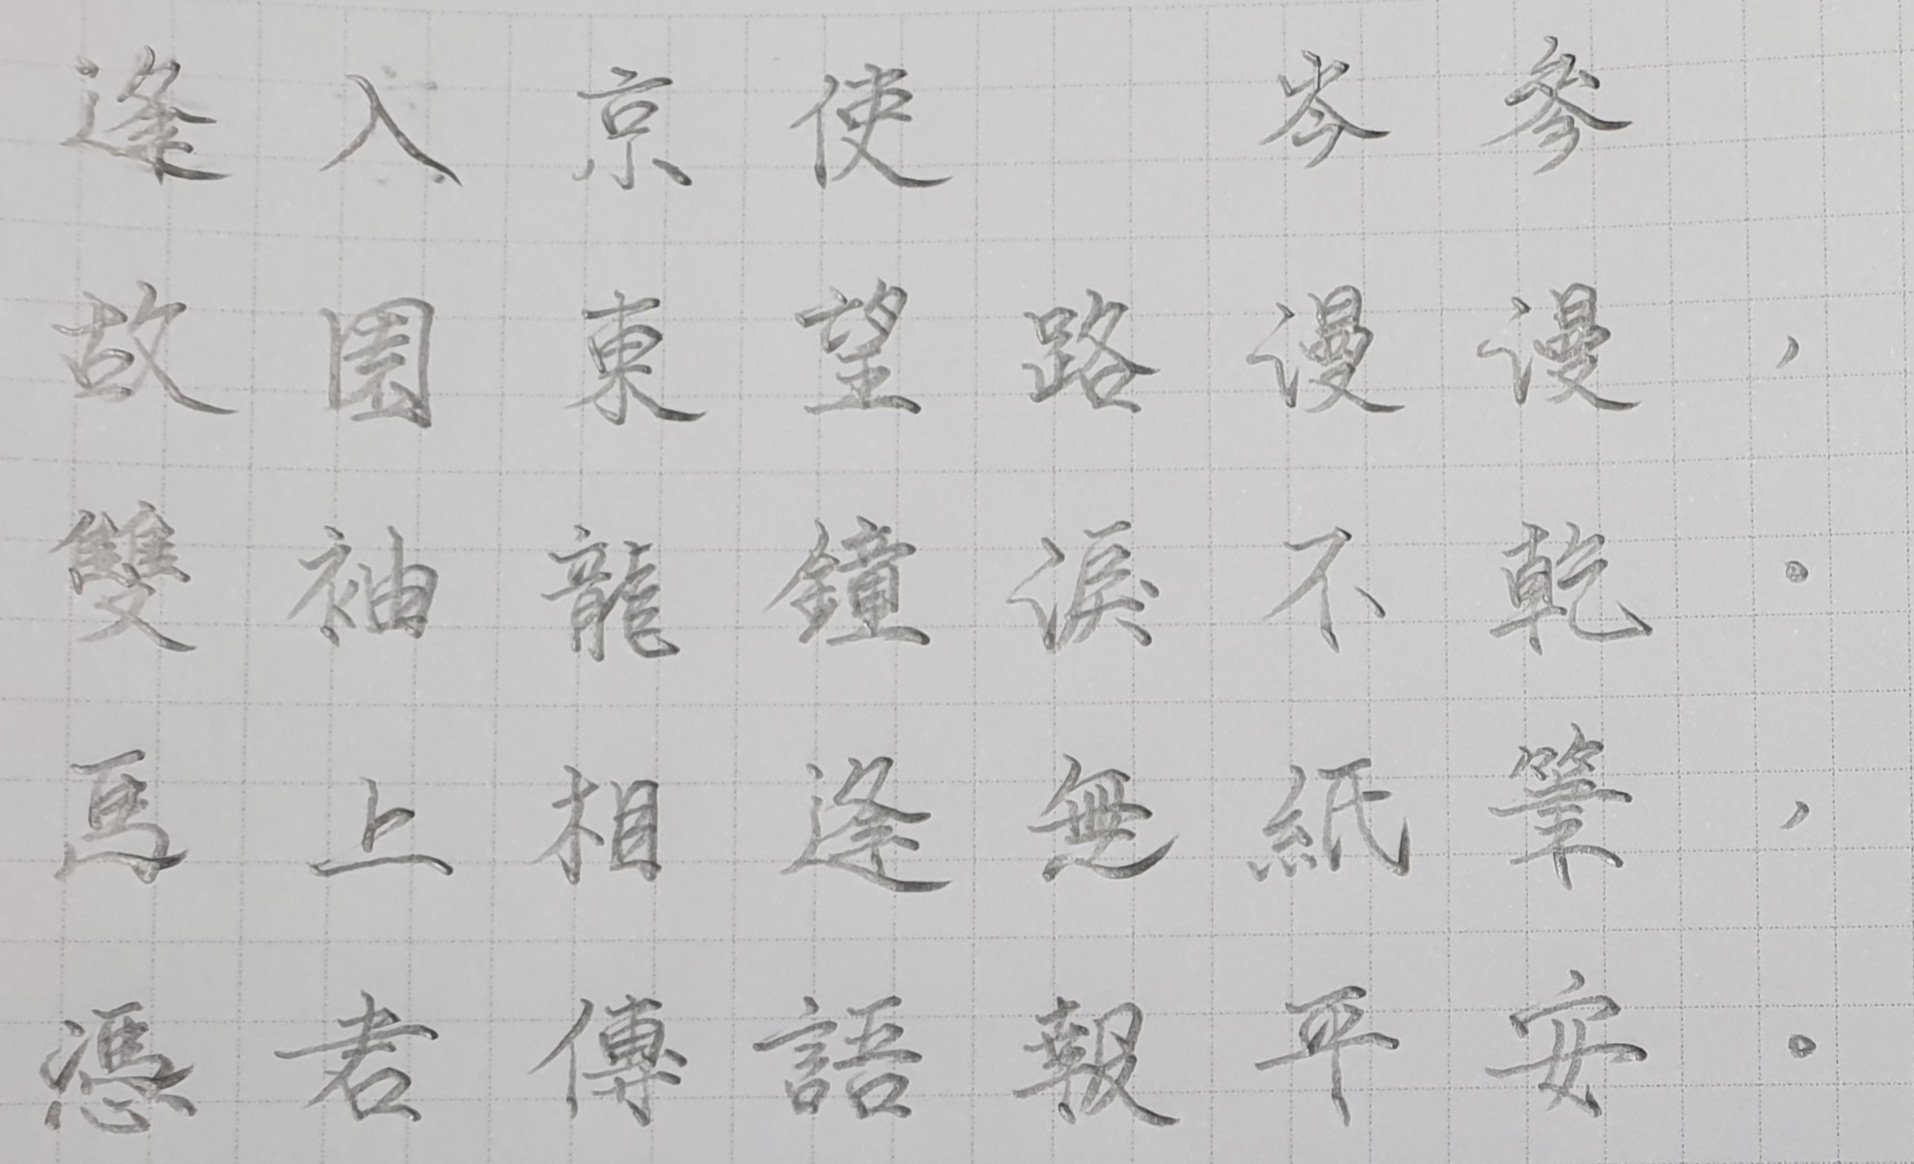 逢入京使 岑參
故園東望路漫漫，
雙袖龍鐘淚不乾。
馬上相逢無紙筆，
憑君傳語報平安。